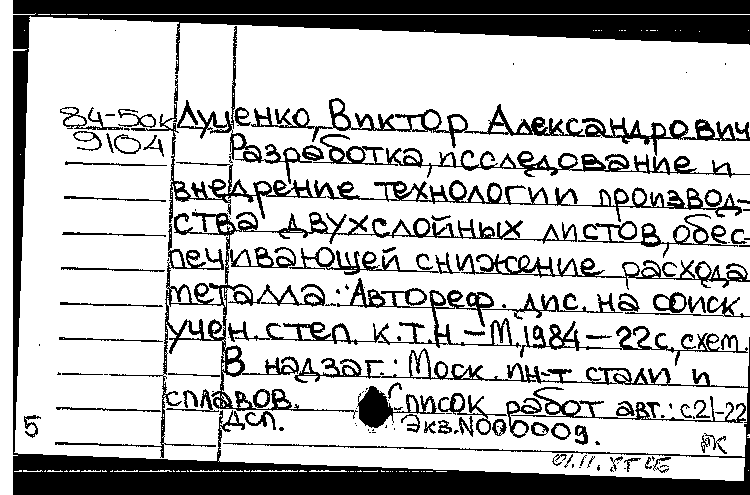 84-50к Луценко, Виктор Александрович
9104 Разработка, исследование и
внедрение технологии производ-
ства двухслойных листов, обес-
печивающей снижение расхода
металла: Автореф. дис. на соиск.
учен. степ. к.т.н. - М., 1984 - 22с., схем.
В надзаг.: Моск. ин-т стали и
сплавов. Список работ авт.: с21-22
5 ДСП. Экз.N000009.
РК